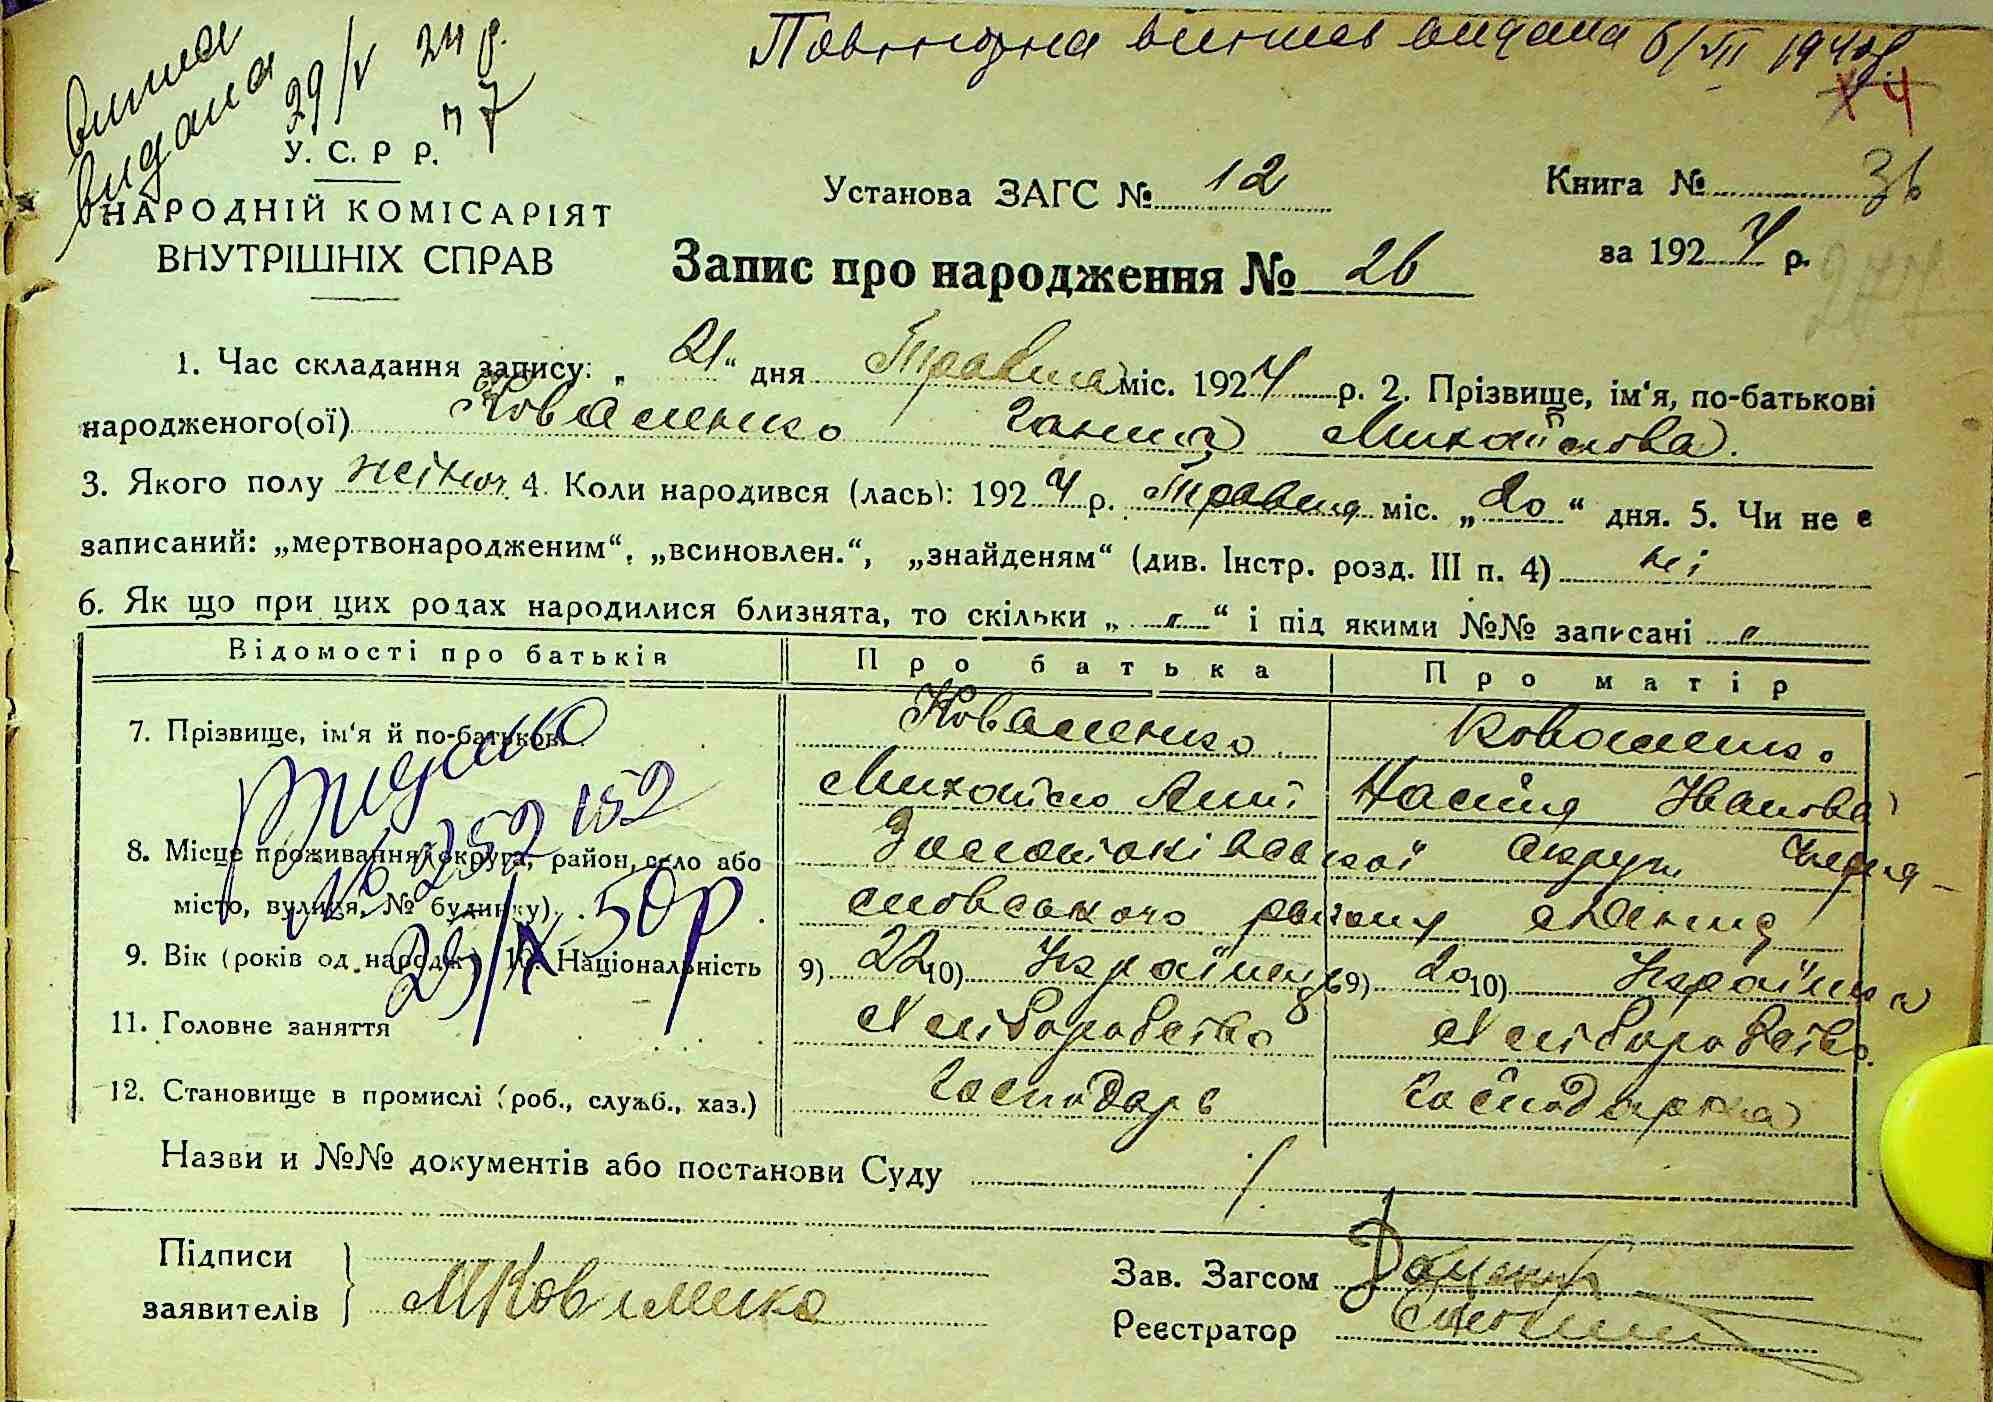 Повторна виписъ видана 6/VII 1940 р.
випис
видана
29/V 24 р.
п 7
У. С. Р Р.
НАРОДНІЙ КОМІСАРІЯТ
ВНУТРІШНІХ СПРАВ
Установа ЗАГС № 12
Книга № 36
за 1924 р.
Запис про народження № 26
1. Час складання запису: „21“ дня Травня міс. 1924 р. 2. Прізвище, ім‘я, по-батькові
народженого(ої) Коваленко Ганна Михайлова.
3. Якого полу жіноч. 4. Коли народився (лась): 1924 р. Травня міс. „20“ дня. 5. Чи не є
записаний: „мертвонародженим“, „всиновлен.“, „знайденям“ (див. Інстр. розд. III п. 4) ні
6. Як що при цих родах народилися близнята, то скільки „ “ і під якими №№ записані
Відомості про батьків Про батька Про матір
7. Прізвище, ім‘я й по-батькові Коваленко Коваленко
Михайло Настя Іванова
8. Місце проживання (округа, район, село або Округи
місто, вулиця, № будинку) району
9. Вік (років од народж.) 10. Національність 9) 22 10) Українець 9) 20 10) Українка
11. Головне заняття Хліборобство Хліборобство
12. Становище в промислі (роб., служб., хаз.) Господарь Господарка
Видано
№ 252152
29/IX 50 р
Назви и №№ документів або постанови Суду
Підписи
заявителів МКоваленко
Зав. Загсом
Реєстратор